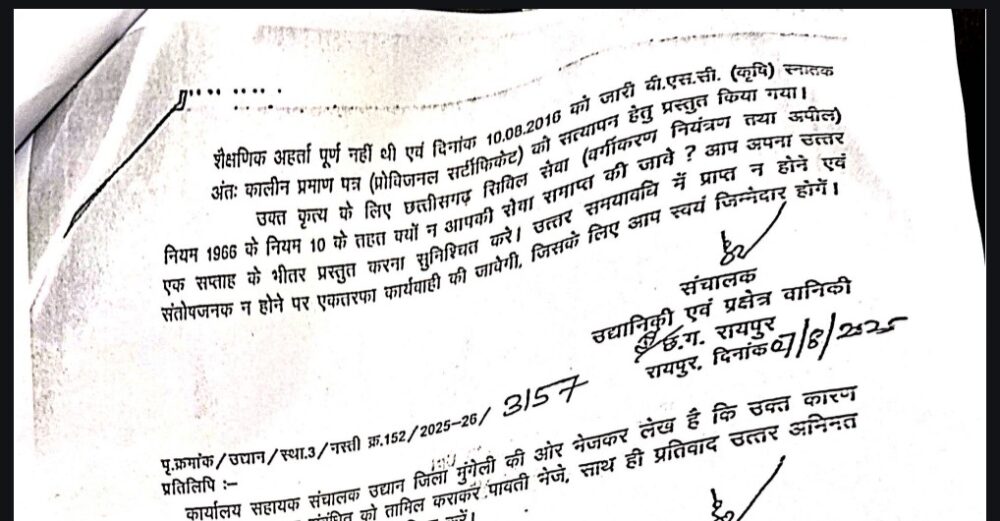 शैक्षणिक अहर्ता पूर्ण नहीं थी एवं दिनांक 10.08.2016 को जारी बी.एस.सी. (कृषि) स्नातक
अंतः कालीन प्रमाण पत्र (प्रोविजनल सर्टीफिकेट) को सत्यापन हेतु प्रस्तुत किया गया।
उक्त कृत्य के लिए छत्तीसगढ़ सिविल सेवा (वर्गीकरण नियंत्रण तथा अपील)
नियम 1966 के नियम 10 के तहत क्यों न आपकी सेवा समाप्त की जावे ? आप अपना उत्तर
एक सप्ताह के भीतर प्रस्तुत करना सुनिश्चित करे। उत्तर समयावधि में प्राप्त न होने एवं
संतोषजनक न होने पर एकतरफा कार्यवाही की जावेगी, जिसके लिए आप स्वयं जिम्मेदार होगें।
संचालक
उद्यानिकी एवं प्रक्षेत्र वानिकी
छ.ग. रायपुर
रायपुर, दिनांक 07/8/2025
पृ.क्रमांक/उद्यान/स्था.3/नस्ती क्र.152/2025-26/ 3157
प्रतिलिपि :–
कार्यालय सहायक संचालक उद्यान जिला मुंगेली की ओर भेजकर लेख है कि उक्त कारण
संबंधित को तामिल कराकर पावती भेजे, साथ ही प्रतिवाद उत्तर अभिमत
करें।